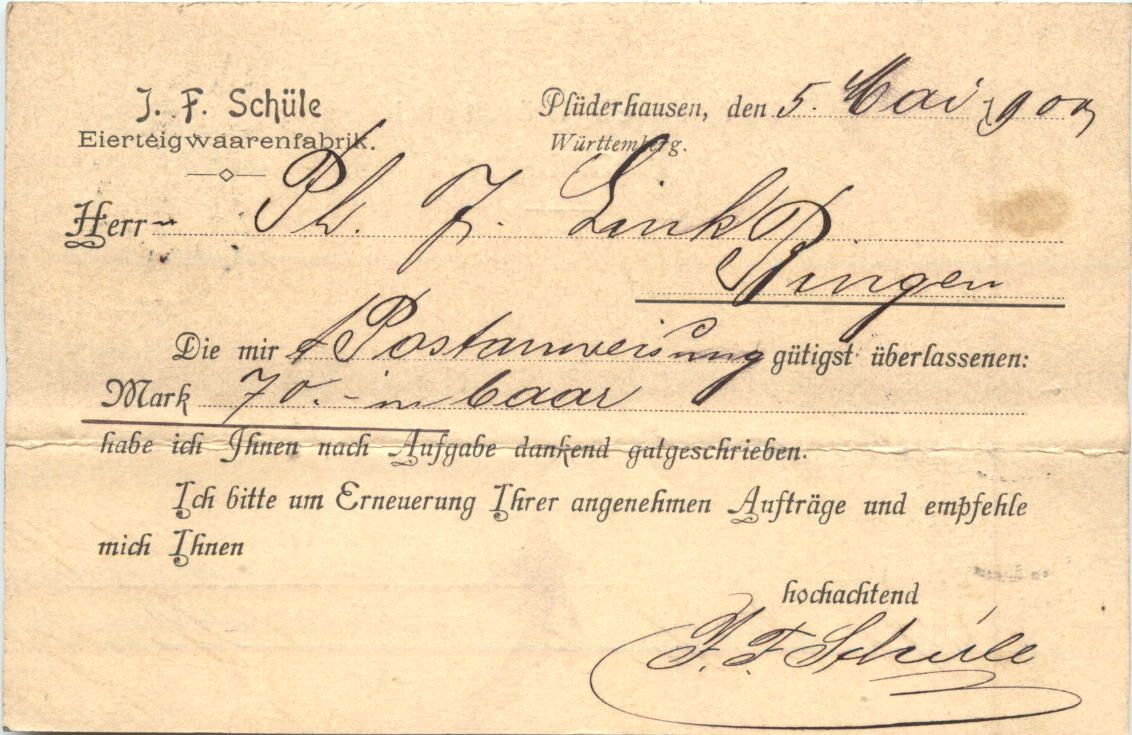 J. F. Schüle
Eierteigwaarenfabrik.
Plüderhausen, den 5. Mai 1900
Württemberg.
Herrn Ph. J. Link
Bingen
Die mir p Postanweisung gütigst überlassenen:
Mark 70.- in baar
habe ich Ihnen nach Aufgabe dankend gutgeschrieben.
Ich bitte um Erneuerung Ihrer angenehmen Aufträge und empfehle
mich Ihnen
hochachtend
J. F. Schüle